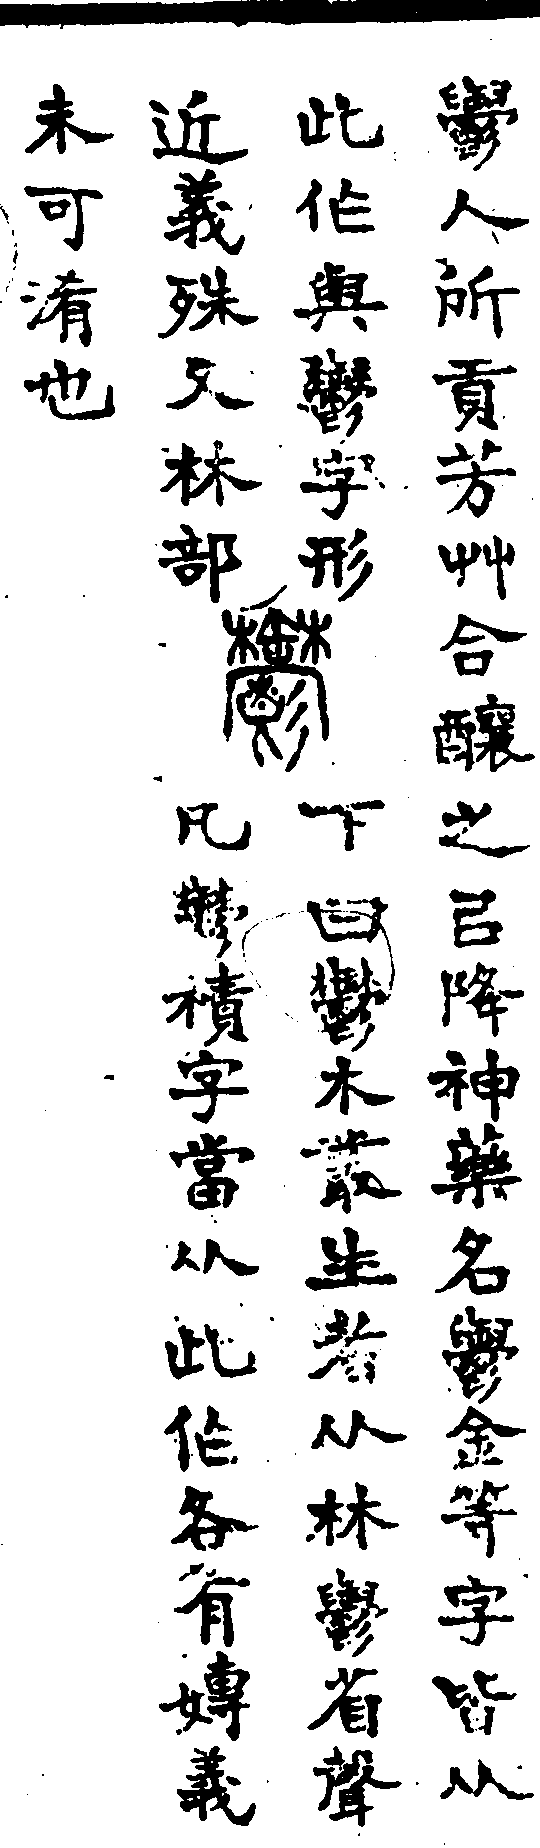 𩰪人所貢芳艸合釀之㠯降神藥名𩰪金等字皆从
此作與鬱字形
近義殊又林部
鬱
下曰鬱木叢生者从林𩰪省聲
凡鬱積字當从此作各有嫥義
未可淆也